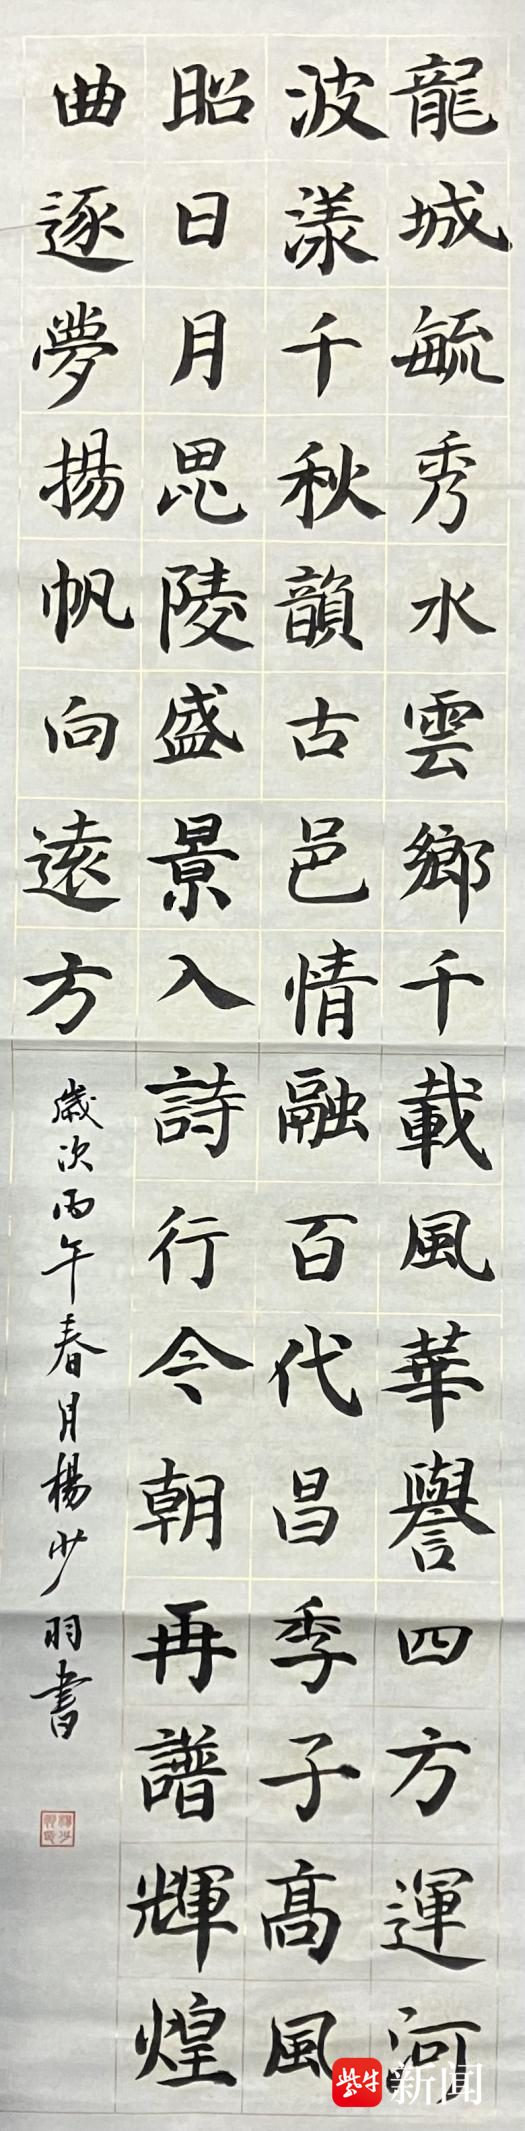 龍城毓秀水雲鄉千載風華譽四方運河
波漾千秋韻古邑情融百代昌季子高風
昭日月毘陵盛景入詩行今朝再譜輝煌
曲逐夢揚帆向遠方
歲次丙午春月楊少羽書
紫牛新闻